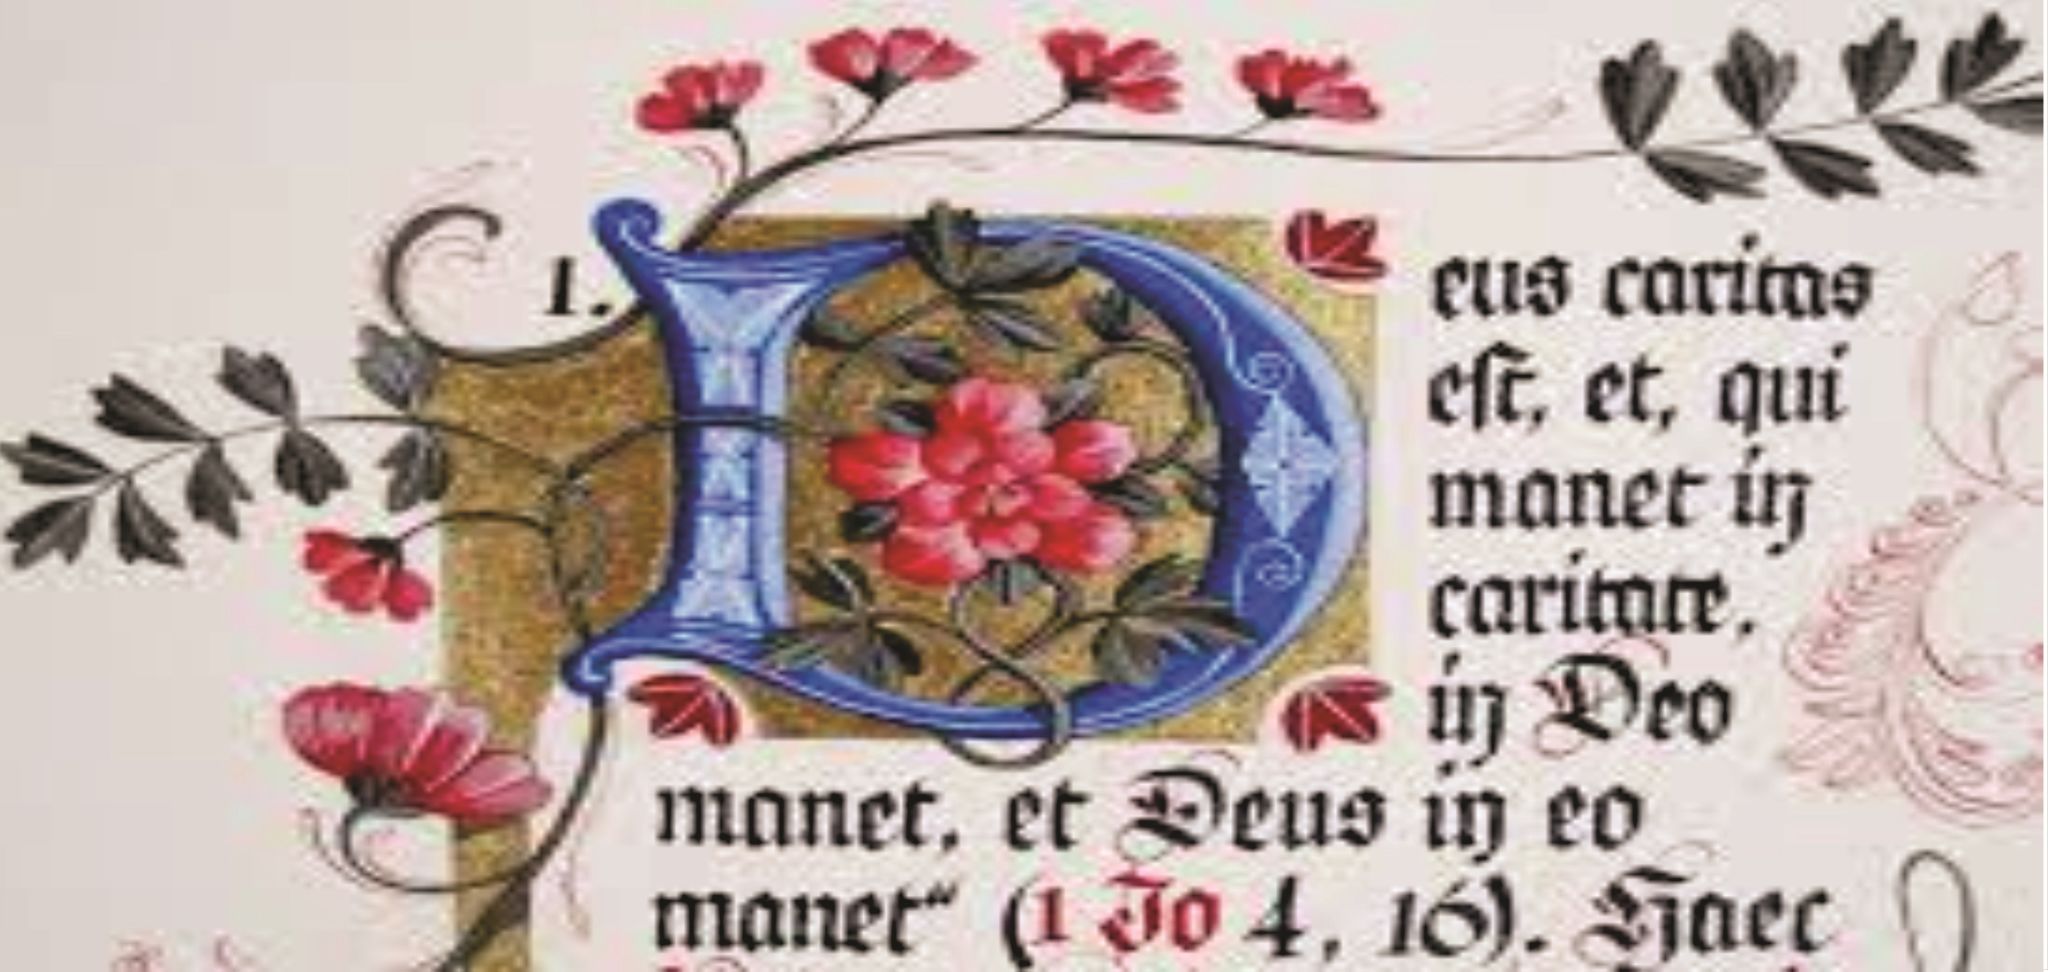 1. Deus caritas
est, et, qui
manet in
caritate,
in Deo
manet, et Deus in eo
manet“ (1 Jo 4, 16). Haec